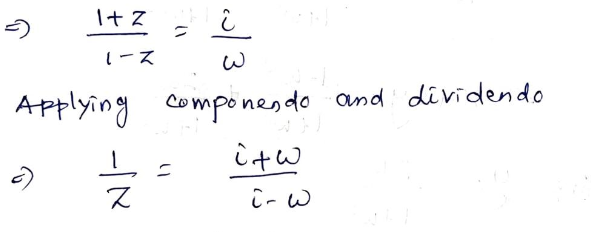 ⇒ (1+z)/(1-z) = i/ω
Applying componendo and dividendo
⇒ 1/z = (i+ω)/(i-ω)